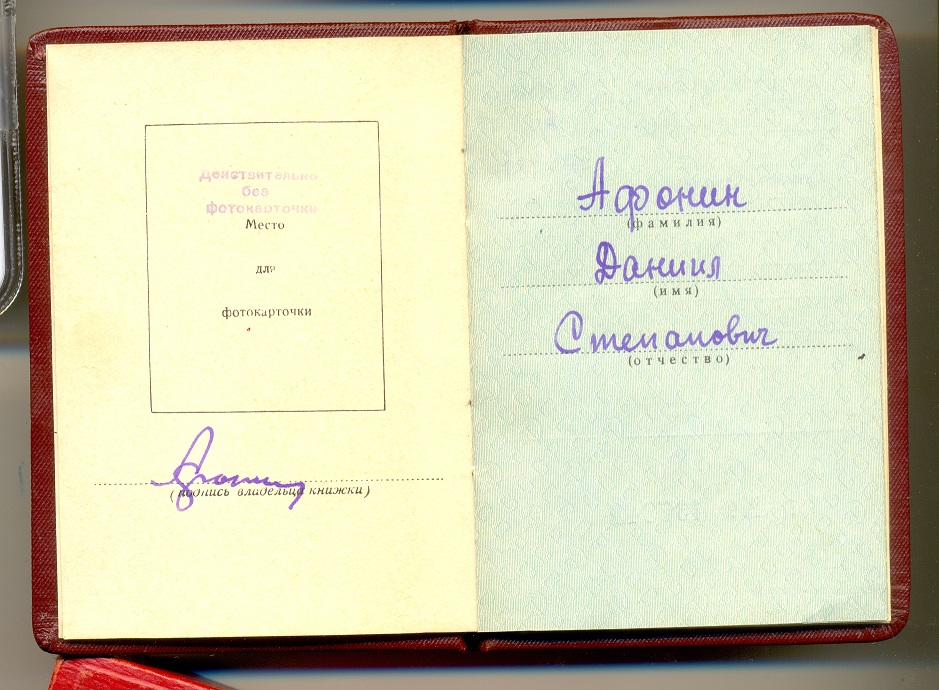 Действительно
без
фотокарточки
Место
для
фотокарточки
(подпись владельца книжки)
Афонин
(фамилия)
Даниил
(имя)
Степанович
(отчество)